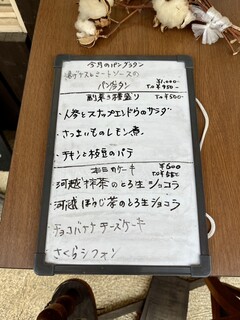 今月のパングラタン
鶏グラスとミートソースの
パングラタン ¥1,000-
T.O ¥950-
副菜3種盛り T.O ¥500-
・人参とスナップエンドウのサラダ
・さつまいものレモン煮
・チキンと枝豆のパテ
本日のケーキ ¥600
T.O ¥550
・河越抹茶のとろ生ショコラ
・河越ほうじ茶のとろ生ショコラ
・チョコバナナチーズケーキ
・さくらシフォン